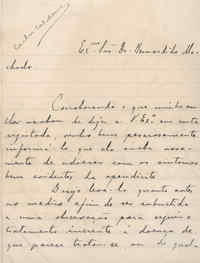 Ex.mo Snr. Dr. Bernardino Ma-
chado
Corroborando o que minha
mandou dizer a V. Ex.a em carta
registada, venho bem pesarosamente
informá-lo que ella acaba nova-
mente de adoecer com os sintomas
bem evidentes da apendicite.
Devo levá-la quanto antes
ao medico afim de ser submetida
a uma observação para seguir o
tratamento inherente á doença de
que parece tratar-se ou do qual-